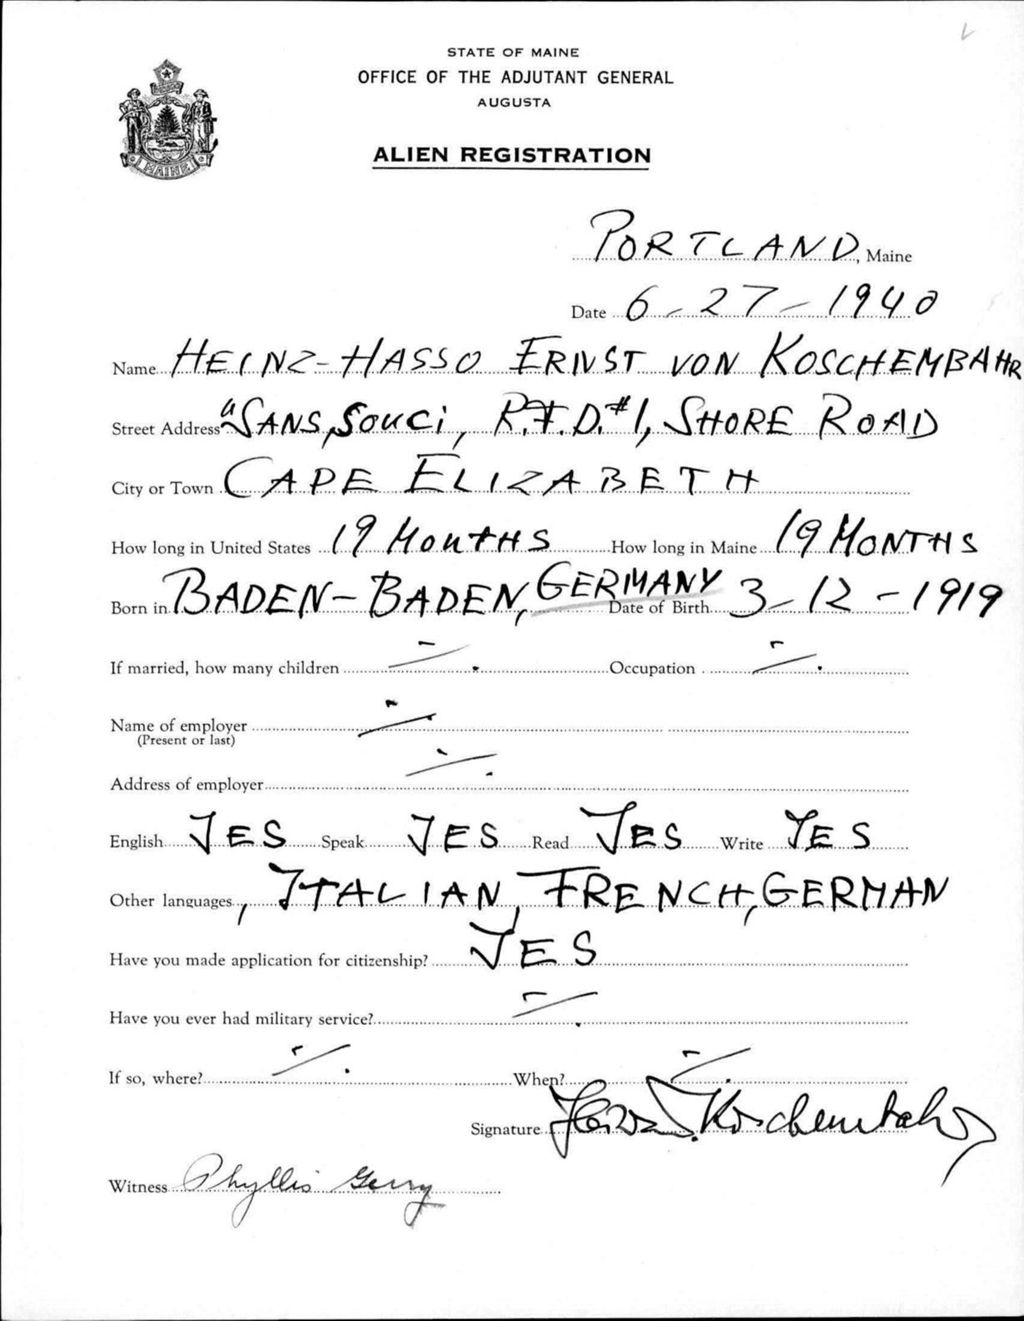 STATE OF MAINE
OFFICE OF THE ADJUTANT GENERAL
AUGUSTA
ALIEN REGISTRATION
MAINE
PORTLAND, Maine
Date 6-27-1940
Name HEINZ-HASSO ERNST VON KOSCHEMBAHR
Street Address "SANS SOUCI, R.F.D. #1, SHORE ROAD
City or Town CAPE ELIZABETH
How long in United States 19 MONTHS How long in Maine 19 MONTHS
Born in BADEN-BADEN, GERMANY Date of Birth 3-12-1919
If married, how many children -/. Occupation -/.
Name of employer -/.
(Present or last)
Address of employer -/.
English YES Speak YES Read YES Write YES
Other languages, ITALIAN, FRENCH, GERMAN
Have you made application for citizenship? YES
Have you ever had military service? -/.
If so, where? -/. When? -/.
Signature Heinz v. Koschembahr
Witness Phyllis Gerry